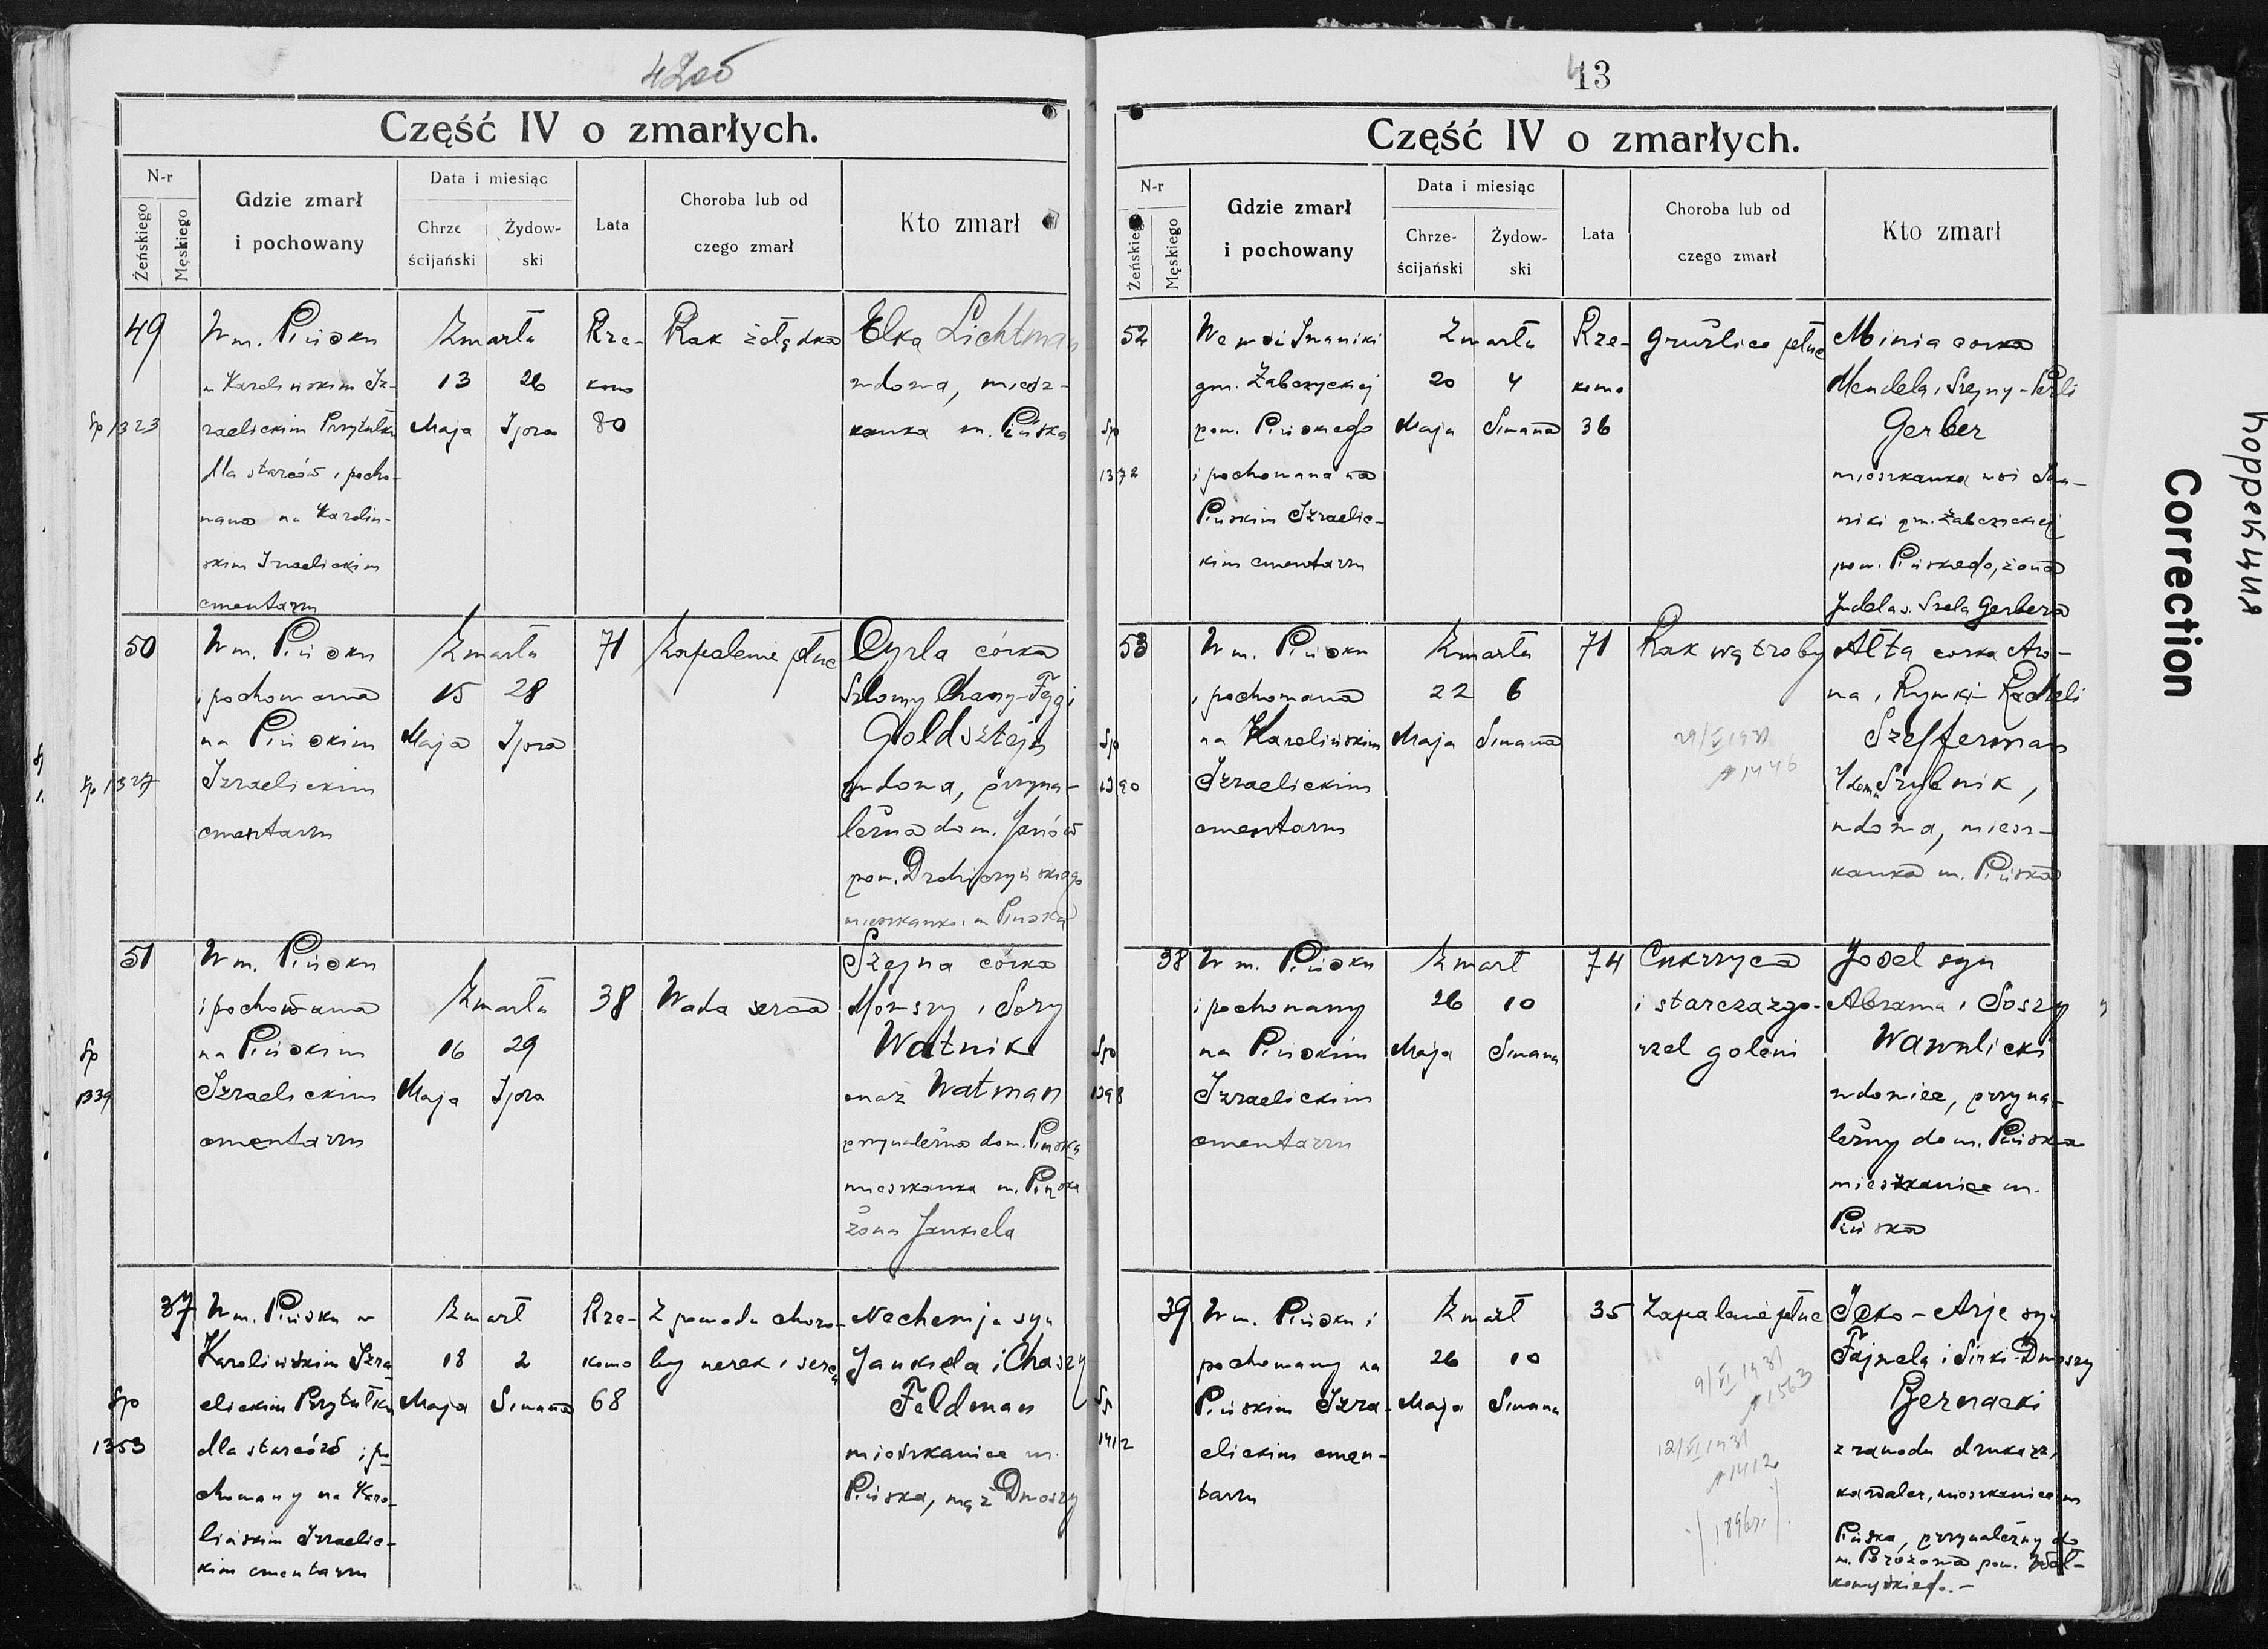 Część IV o zmarłych.
N-r
Żeńskiego
Męskiego
Gdzie zmarł
i pochowany
Data i miesiąc
Chrze
ścijański
Żydow-
ski
Lata
Choroba lub od
czego zmarł
Kto zmarł
49
Sp 1323
W m. Pińsku
w Karolińskim Iz-
raelickim Przytułku
dla starców i pocho-
wana na Karoliń-
skim Izraelickim
cmentarzu
Zmarła
13 26
Maja Ijora
Rze-
komo
80
Rak żołądka
Elka Lichtman
wdowa, miesz-
kanka m. Pińska
50
Sp 1327
W m. Pińsku
i pochowana
na Pińskim
Izraelickim
cmentarzu
Zmarła
15 28
Maja Ijora
71
Zapalenie płuc
Cyrla córka
Szlomy Chasy-Fejgi
Goldsztejn
wdowa, przyna-
leżna do m. Janów
pow. Drohiczyńskiego
mieszkanka m. Pińska
51
Sp
1339
W m. Pińsku
i pochowana
na Pińskim
Izraelickim
cmentarzu
Zmarła
16 29
Maja Ijora
38
Wada serca
Szejna córka
Mowszy i Sory
Watnik
onaż Watman
przynależna do m. Pińska
mieszkanka m. Pińska
żona Jankiela
37
Sp
1353
W m. Pińsku w
Karolińskim Izra
elickim Przytułku
dla starców i po
chowany na Karo-
lińskim Izraelic-
kim cmentarzu
Zmarł
18 2
Maja Siwana
Rze-
komo
68
Z powodu choro-
by nerek i serca
Nechemja syn
Jankiela i Chaszy
Feldman
mieszkaniec m.
Pińska, mąż Dwoszy
13
Część IV o zmarłych.
N-r
Żeńskiego
Męskiego
Gdzie zmarł
i pochowany
Data i miesiąc
Chrze-
ścijański
Żydow-
ski
Lata
Choroba lub od
czego zmarł
Kto zmarł
52
Sp
1372
We wsi Iwaniki
gm. Żabczyckiej
pow. Pińskiego
i pochowana na
Pińskim Izraelic-
kim cmentarzu
Zmarła
20 4
Maja Siwana
Rze-
komo
36
Gruźlica płuc
Minia córka
Mendela i Szejny-Perli
Gerber
mieszkanka wsi Iwa-
niki gm. Żabczyckiej
pow. Pińskiego, żona
Judela s. Szela Gerbera
53
Sp
1390
W m. Pińsku
i pochowana
na Karolińskim
Izraelickim
cmentarzu
Zmarła
22 6
Maja Siwana
71
Rak wątroby
29/V 1931
1446
Ałta córka Aro-
na i Rywki-Racheli
Szefferman
z domu Szybnik,
wdowa, miesz-
kanka m. Pińska
38
Sp
1398
W m. Pińsku
i pochowany
na Pińskim
Izraelickim
cmentarzu
Zmarł
26 10
Maja Siwana
74
Cukrzyca
i starcza zgo-
rzel goleni
Josel syn
Abrama i Soszy
Wawulicki
wdowiec, przyna-
leżny do m. Pińska
mieszkaniec m.
Pińska
39
Sp
1412
W m. Pińsku i
pochowany na
Pińskim Izra-
elickim cmen-
tarzu
Zmarł
26 10
Maja Siwana
35
Zapalenie płuc
9/VI 1931
1563
12/VI 1931
1412
1896r.
Icko-Arje syn
Fajwela i Sirki-Dwoszy
Bernacki
z zawodu drukarz,
kawaler, mieszkaniec m
Pińska, przynależny do
m. Porozowa pow. Woł-
kowyskiego.-
Correction
Коррекция